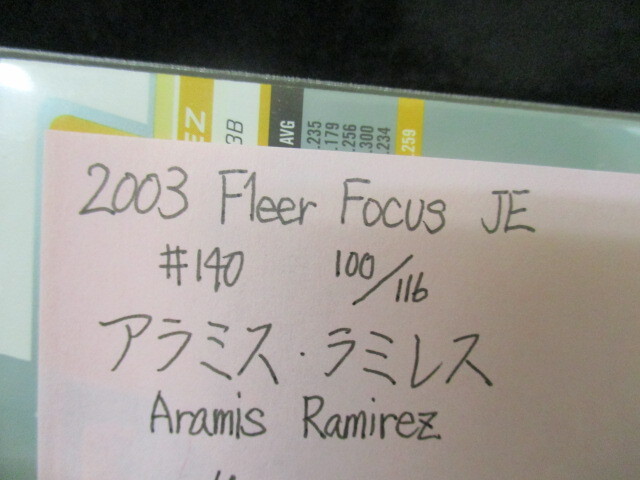 EZ
3B
AVG
.235
.179
.256
.300
.234
.259
2003 Fleer Focus JE
#140 100/116
アラミス・ラミレス
Aramis Ramirez